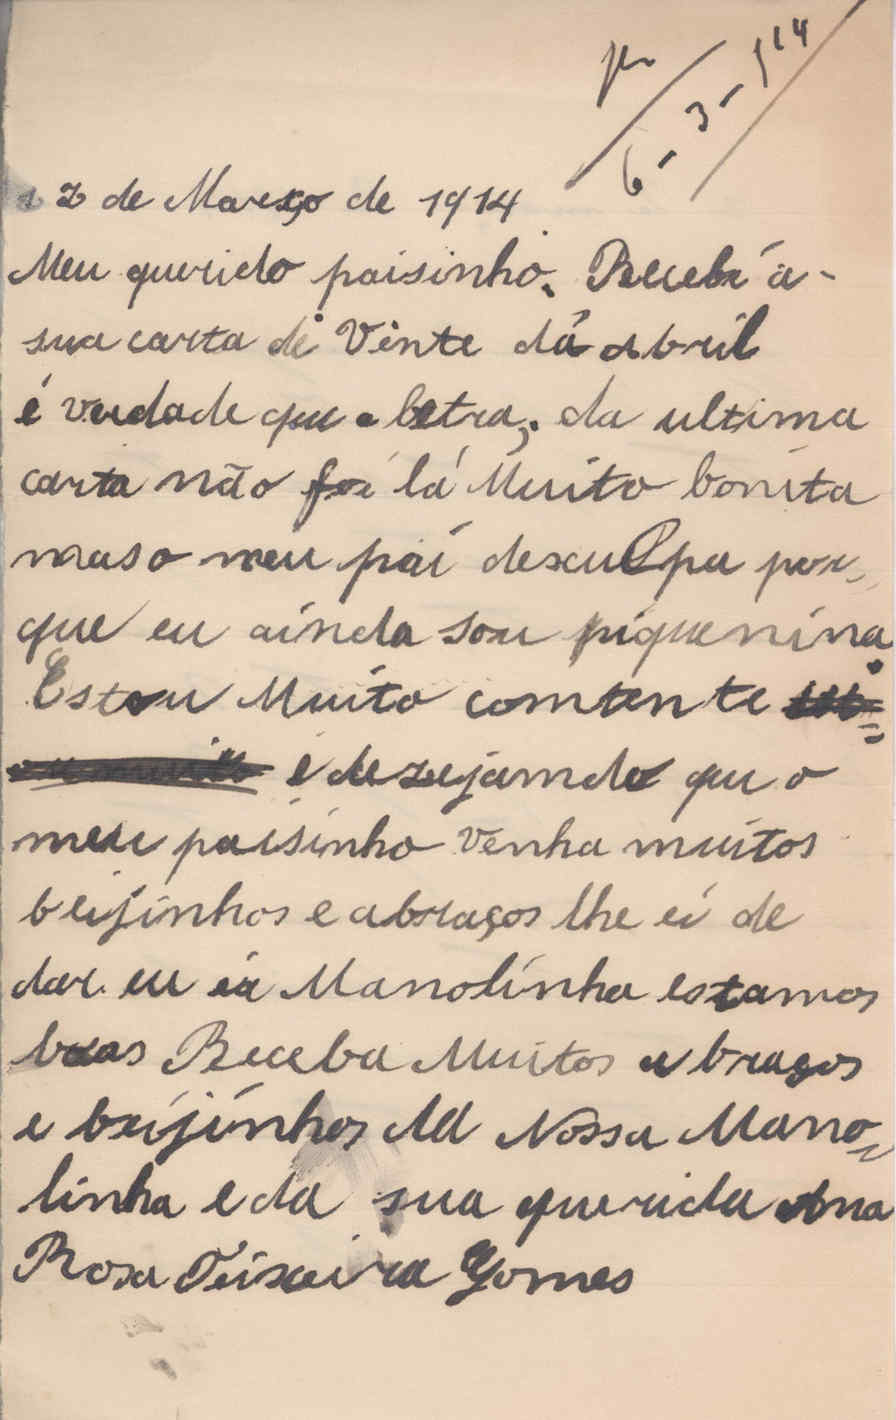 6-3-914
2 de Março de 1914
Meu querido paisinho. Recebi a-
sua carta de Vinte dá Abril
é verdade que a letra, da ultima
carta não foi lá Muito bonita
mas o meu pai desculpa por-
que eu ainda sou piquenina.
Estou Muito comtente
é dezejamdo qu o
meu paisinho venha muitos
beijinhos e abraços lhe ei de
dar. eu éa Manolinha estamos
boas Receba Muitos abraços
e beijinhos dd Nossa Mano=
linha e da sua querida Ana
Rosa Teixeira Gomes